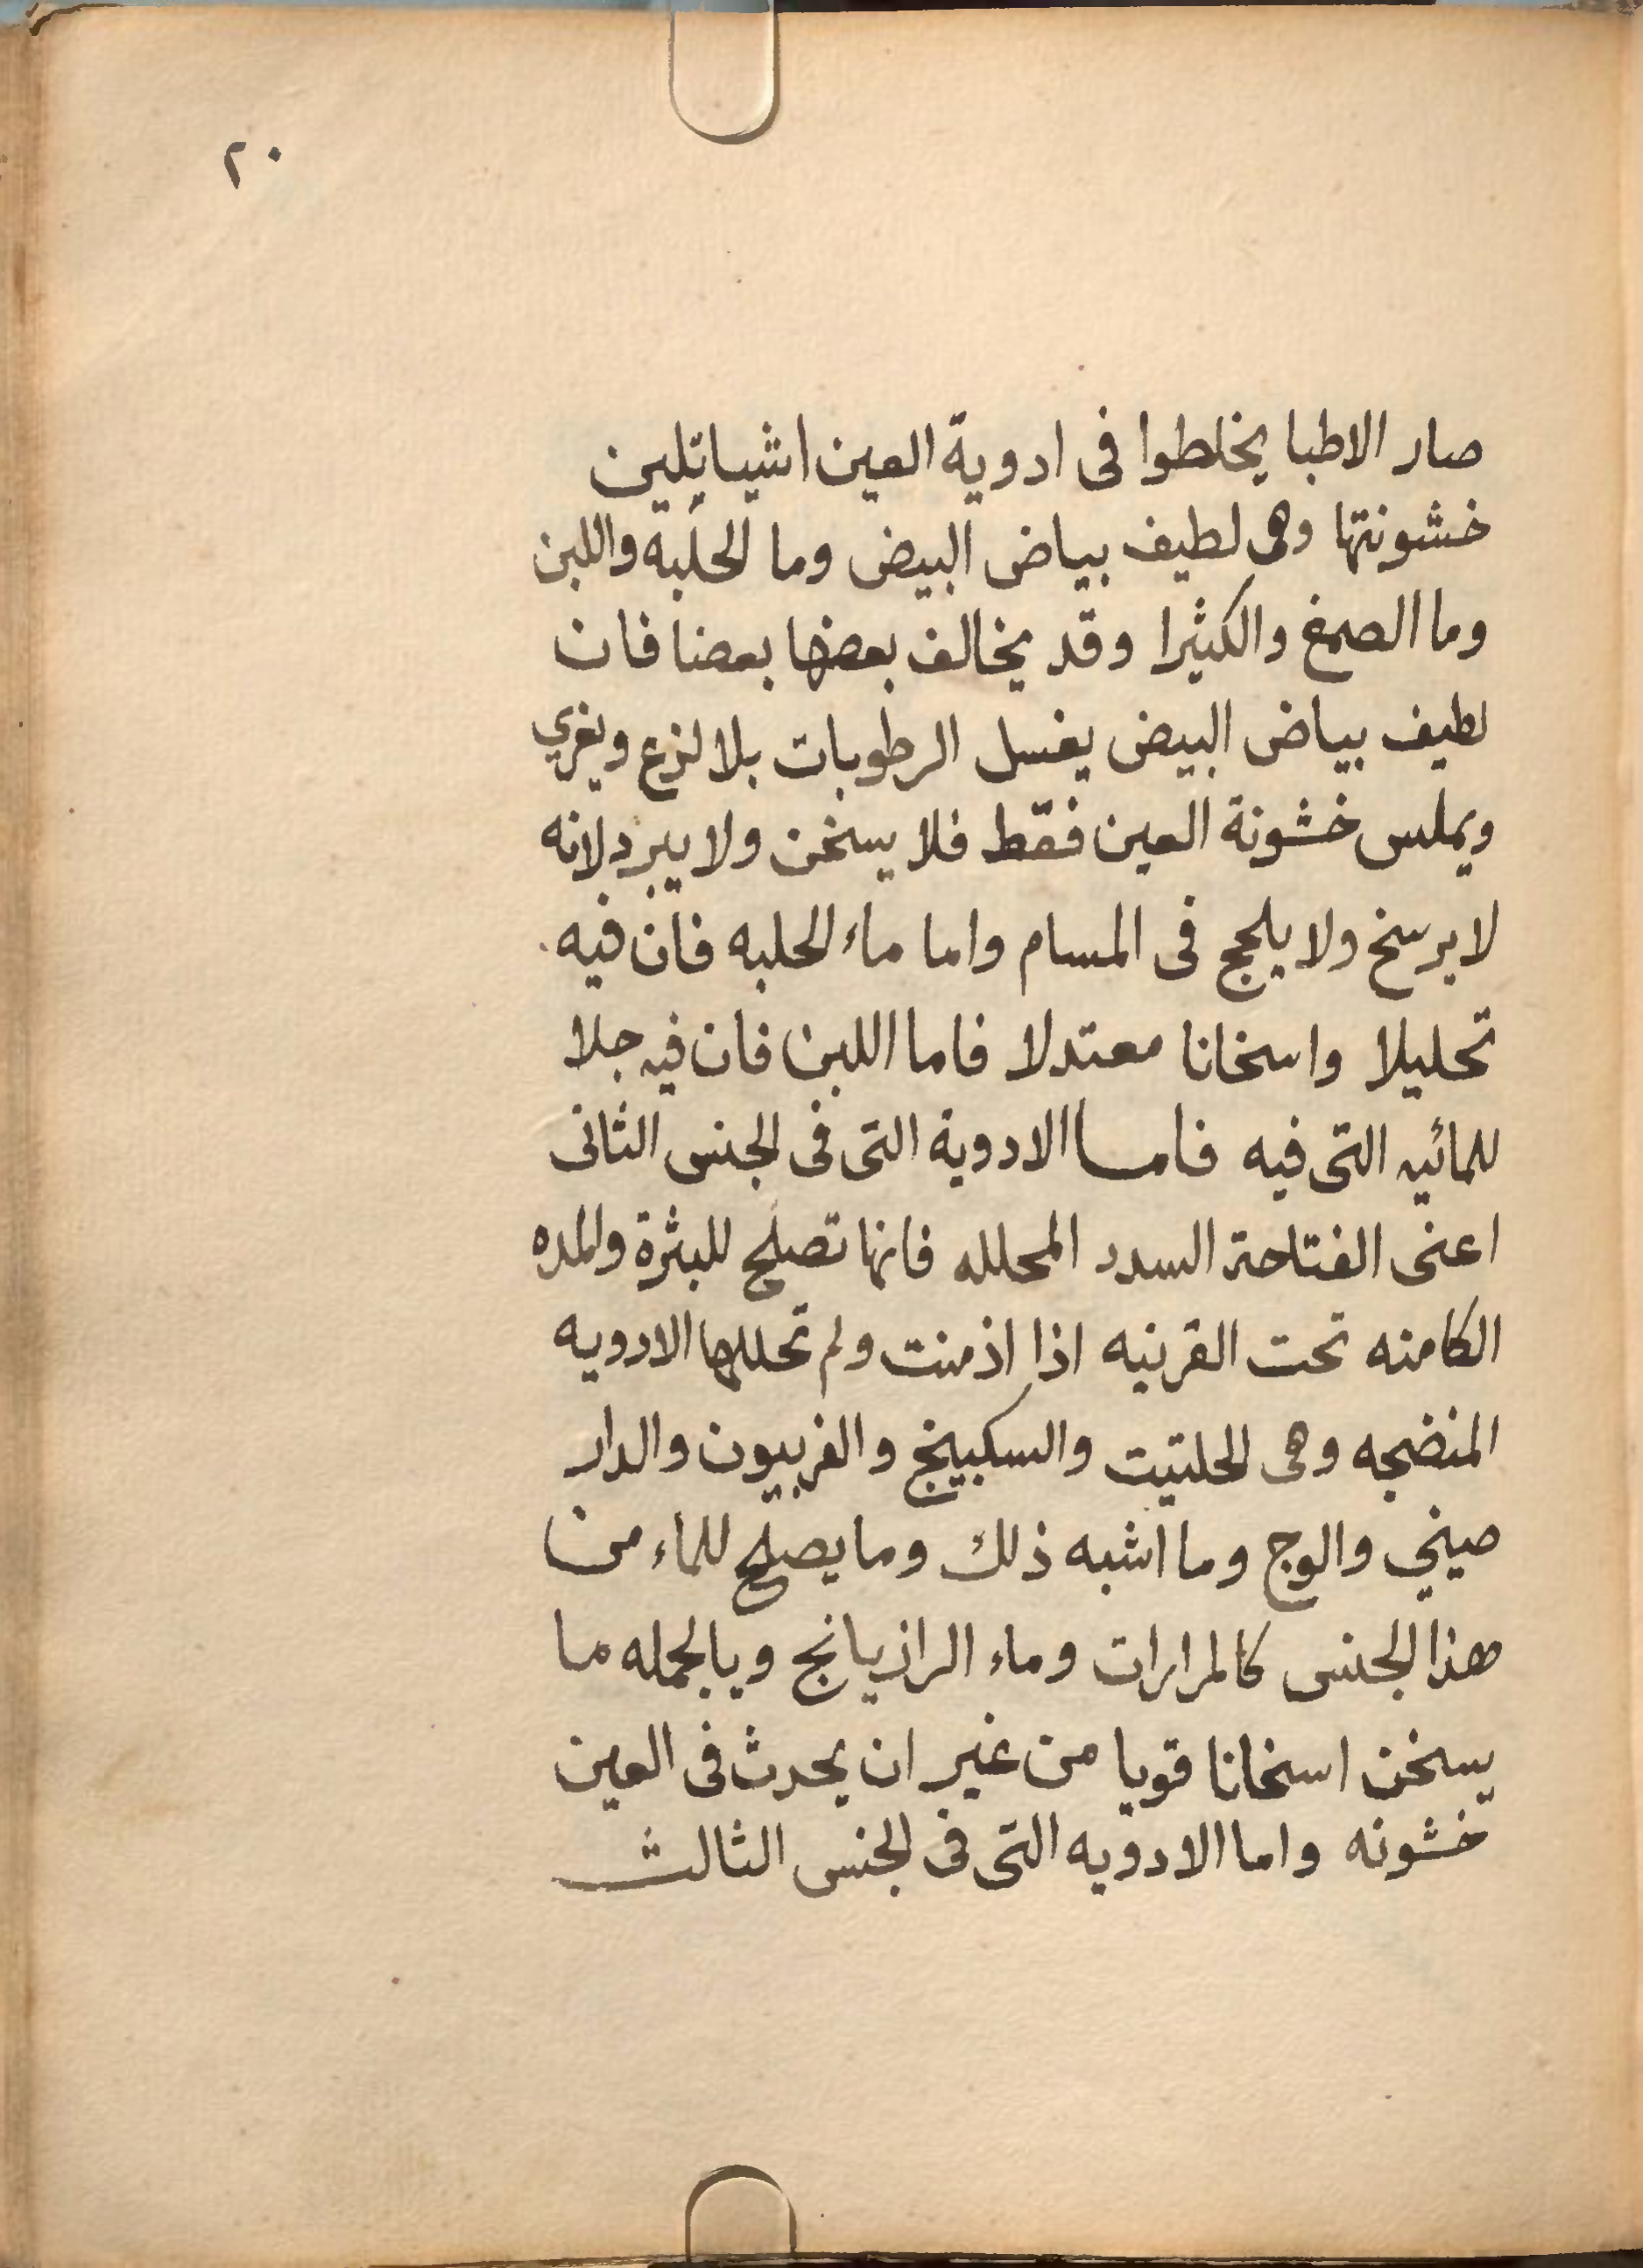 ٢٠
صار الاطبا يخلطوا فى ادوية العين اشياتلين
خشونتها وهى لطيف بياض البيض وما الحلبه واللبن
وما الصمغ والكثيرا وقد يخالف بعضها بعضا فان
لطيف بياض البيض يغسل الرطوبات بلا لزع ويغري
ويملس خشونة العين فقط فلا يسخن ولا يبرد لانه
لا يرسخ ولا يلحج فى المسام واما ماء الحلبه فان فيه
تحليلا واسخانا معتدلا فاما اللبن فان فيه جلا
للمائيه التى فيه فاما الادوية التى فى الجنس الثانى
اعنى الفتاحة السدد المحلله فانها تصلح للبثرة والمده
الكامنه تحت القرنيه اذا اذمنت ولم تحللها الادويه
المنضجه وهى الحلتيت والسكبينج والفربيون والدار
صيني والوج وما اشبه ذلك وما يصلح للماء من
هذا الجنس كالمرارات وماء الرازيانج وبالجمله ما
يسخن اسخانا قويا من غير ان يحدث فى العين
خشونه واما الادويه التى فى الجنس الثالث